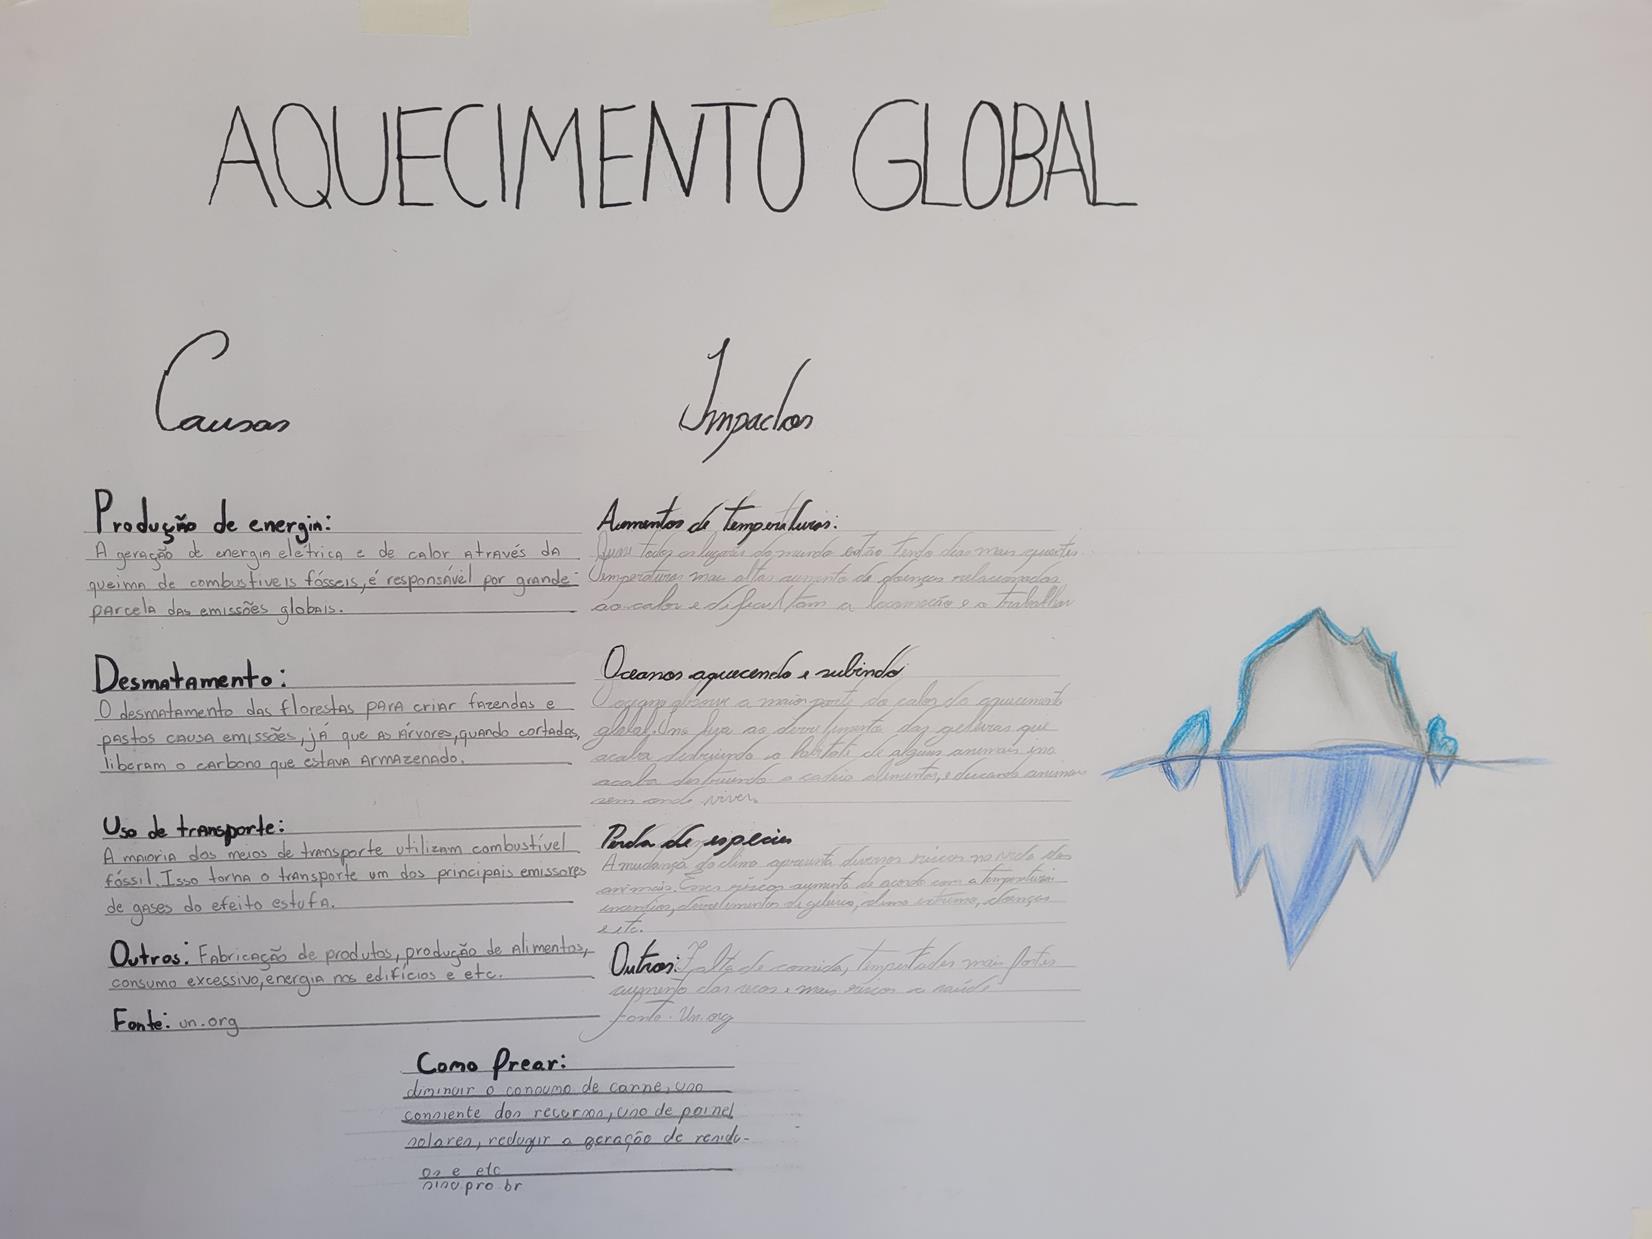 AQUECIMENTO GLOBAL
Causas
Produção de energia:
A geração de energia elétrica e de calor através da
queima de combustíveis fósseis, é responsável por grande
parcela das emissões globais.
Desmatamento:
O desmatamento das florestas para criar fazendas e
pastos causa emissões, já que as árvores, quando cortadas,
liberam o carbono que estava armazenado.
Uso de transporte:
A maioria dos meios de transporte utilizam combustível
fóssil. Isso torna o transporte um dos principais emissores
de gases do efeito estufa.
Outros: Fabricação de produtos, produção de alimentos,
consumo excessivo, energia nos edifícios e etc.
Fonte: un.org
Impactos
Aumentos de temperaturas:
Quase todos os lugares do mundo estão tendo dias mais quentes
Temperaturas mais altas aumento de doenças relacionadas
ao calor e dificultam a locomoção e o trabalhar
Oceanos aquecendo e subindo
O oceano a maior parte do calor do aquecimento
global. ao derretimento das geleiras que
acaba destruindo o habitats de alguns animais
acaba destruindo a cadeia animais
sem onde viver.
Perda de espécies
A mudança do clima apresenta diversos riscos na vida dos
animais. Esses riscos aumenta de acordo com a temperatura
incendios, derretimentos de geleiras, clima extremo, doenças
e etc.
Outros: Falta de comida, tempestades mais fortes
aumento das secas e mais riscos a saúde
Fonte: Un.org
Como frear:
diminuir o consumo de carne, uso
consiente dos recursos, uso de painel
solares, reduzir a geração de resídu-
os e etc
pro.br